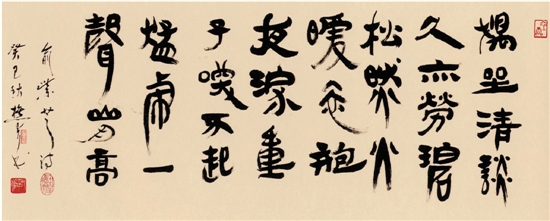 坐清談
久亦勞碧
松然火
暖衾袍
夜深童
子喚不起
猛虎一
聲山月高
俞紫芝詩
癸巳